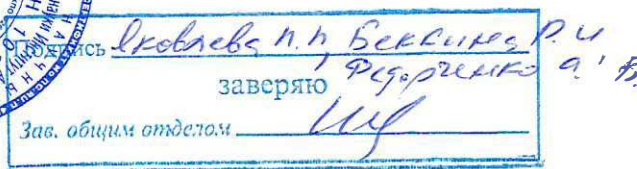 Подпись Яковлева п.п, Беккина Р.И
Федорченко а.В.
заверяю
Зав. общим отделом